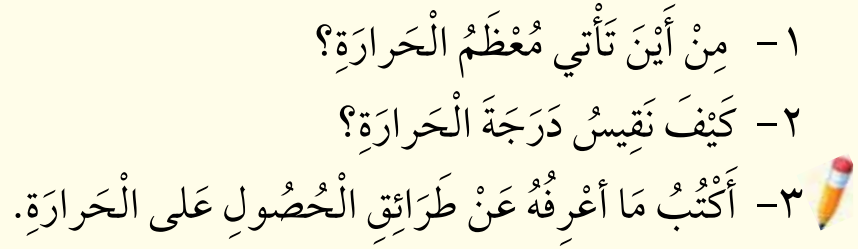 ١- مِنْ أَيْنَ تَأْتي مُعْظَمُ الْحَرارَةِ؟
٢- كَيْفَ نَقِيسُ دَرَجَةَ الْحَرارَةِ؟
٣- أَكْتُبُ مَا أَعْرِفُهُ عَنْ طَرَائِقِ الْحُصُولِ عَلى الْحَرارَةِ.